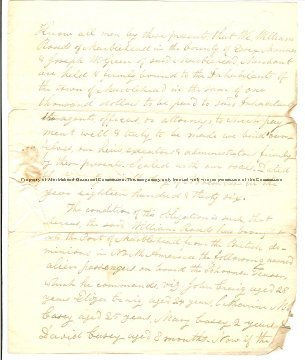 Know all men by these present that We William
Roads of Marblehead in the County of Essex Mariner
& Joseph W Green of said Marblehead Merchant
are held & firmly bound to the Inhabitants of
the town of Marblehead in the sum of one
thousand dollars to be paid to said Inhabitants
agents officers or attorneys to which pay
ment well & truly to be made we bind our
selves our heirs executors & administrators firmly
by these presents. Sealed with our seals. Dated
year eighteen hundred & thirty six.
The condition of this obligation is such that
whereas the said William Roads has brought
in the Port of Marblehead from the British do
minions in North America the following named
alien passengers on board the Schooner
which he commands, viz John Craig aged 28
years Eliza Craig aged 20 years Catharine Mc
Casey aged 25 years Mary Casey 2 years &
David Casey aged 8 months. Now if the